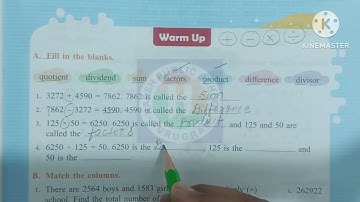 Warm Up
KINEMASTER
A. Fill in the blanks.
quotient dividend sum factors product difference divisor
1. 3272 + 4590 = 7862. 7862 is called the Sum
2. 7862 − 3272 = 4590. 4590 is called the Difference
3. 125 × 50 = 6250. 6250 is called the Product and 125 and 50 are
called the factors
4. 6250 ÷ 125 = 50. 6250 is the 125 is the and
50 is the
B. Match the columns.
1. There are 2564 boys and 1583 i. 262922
school. Find the total number of